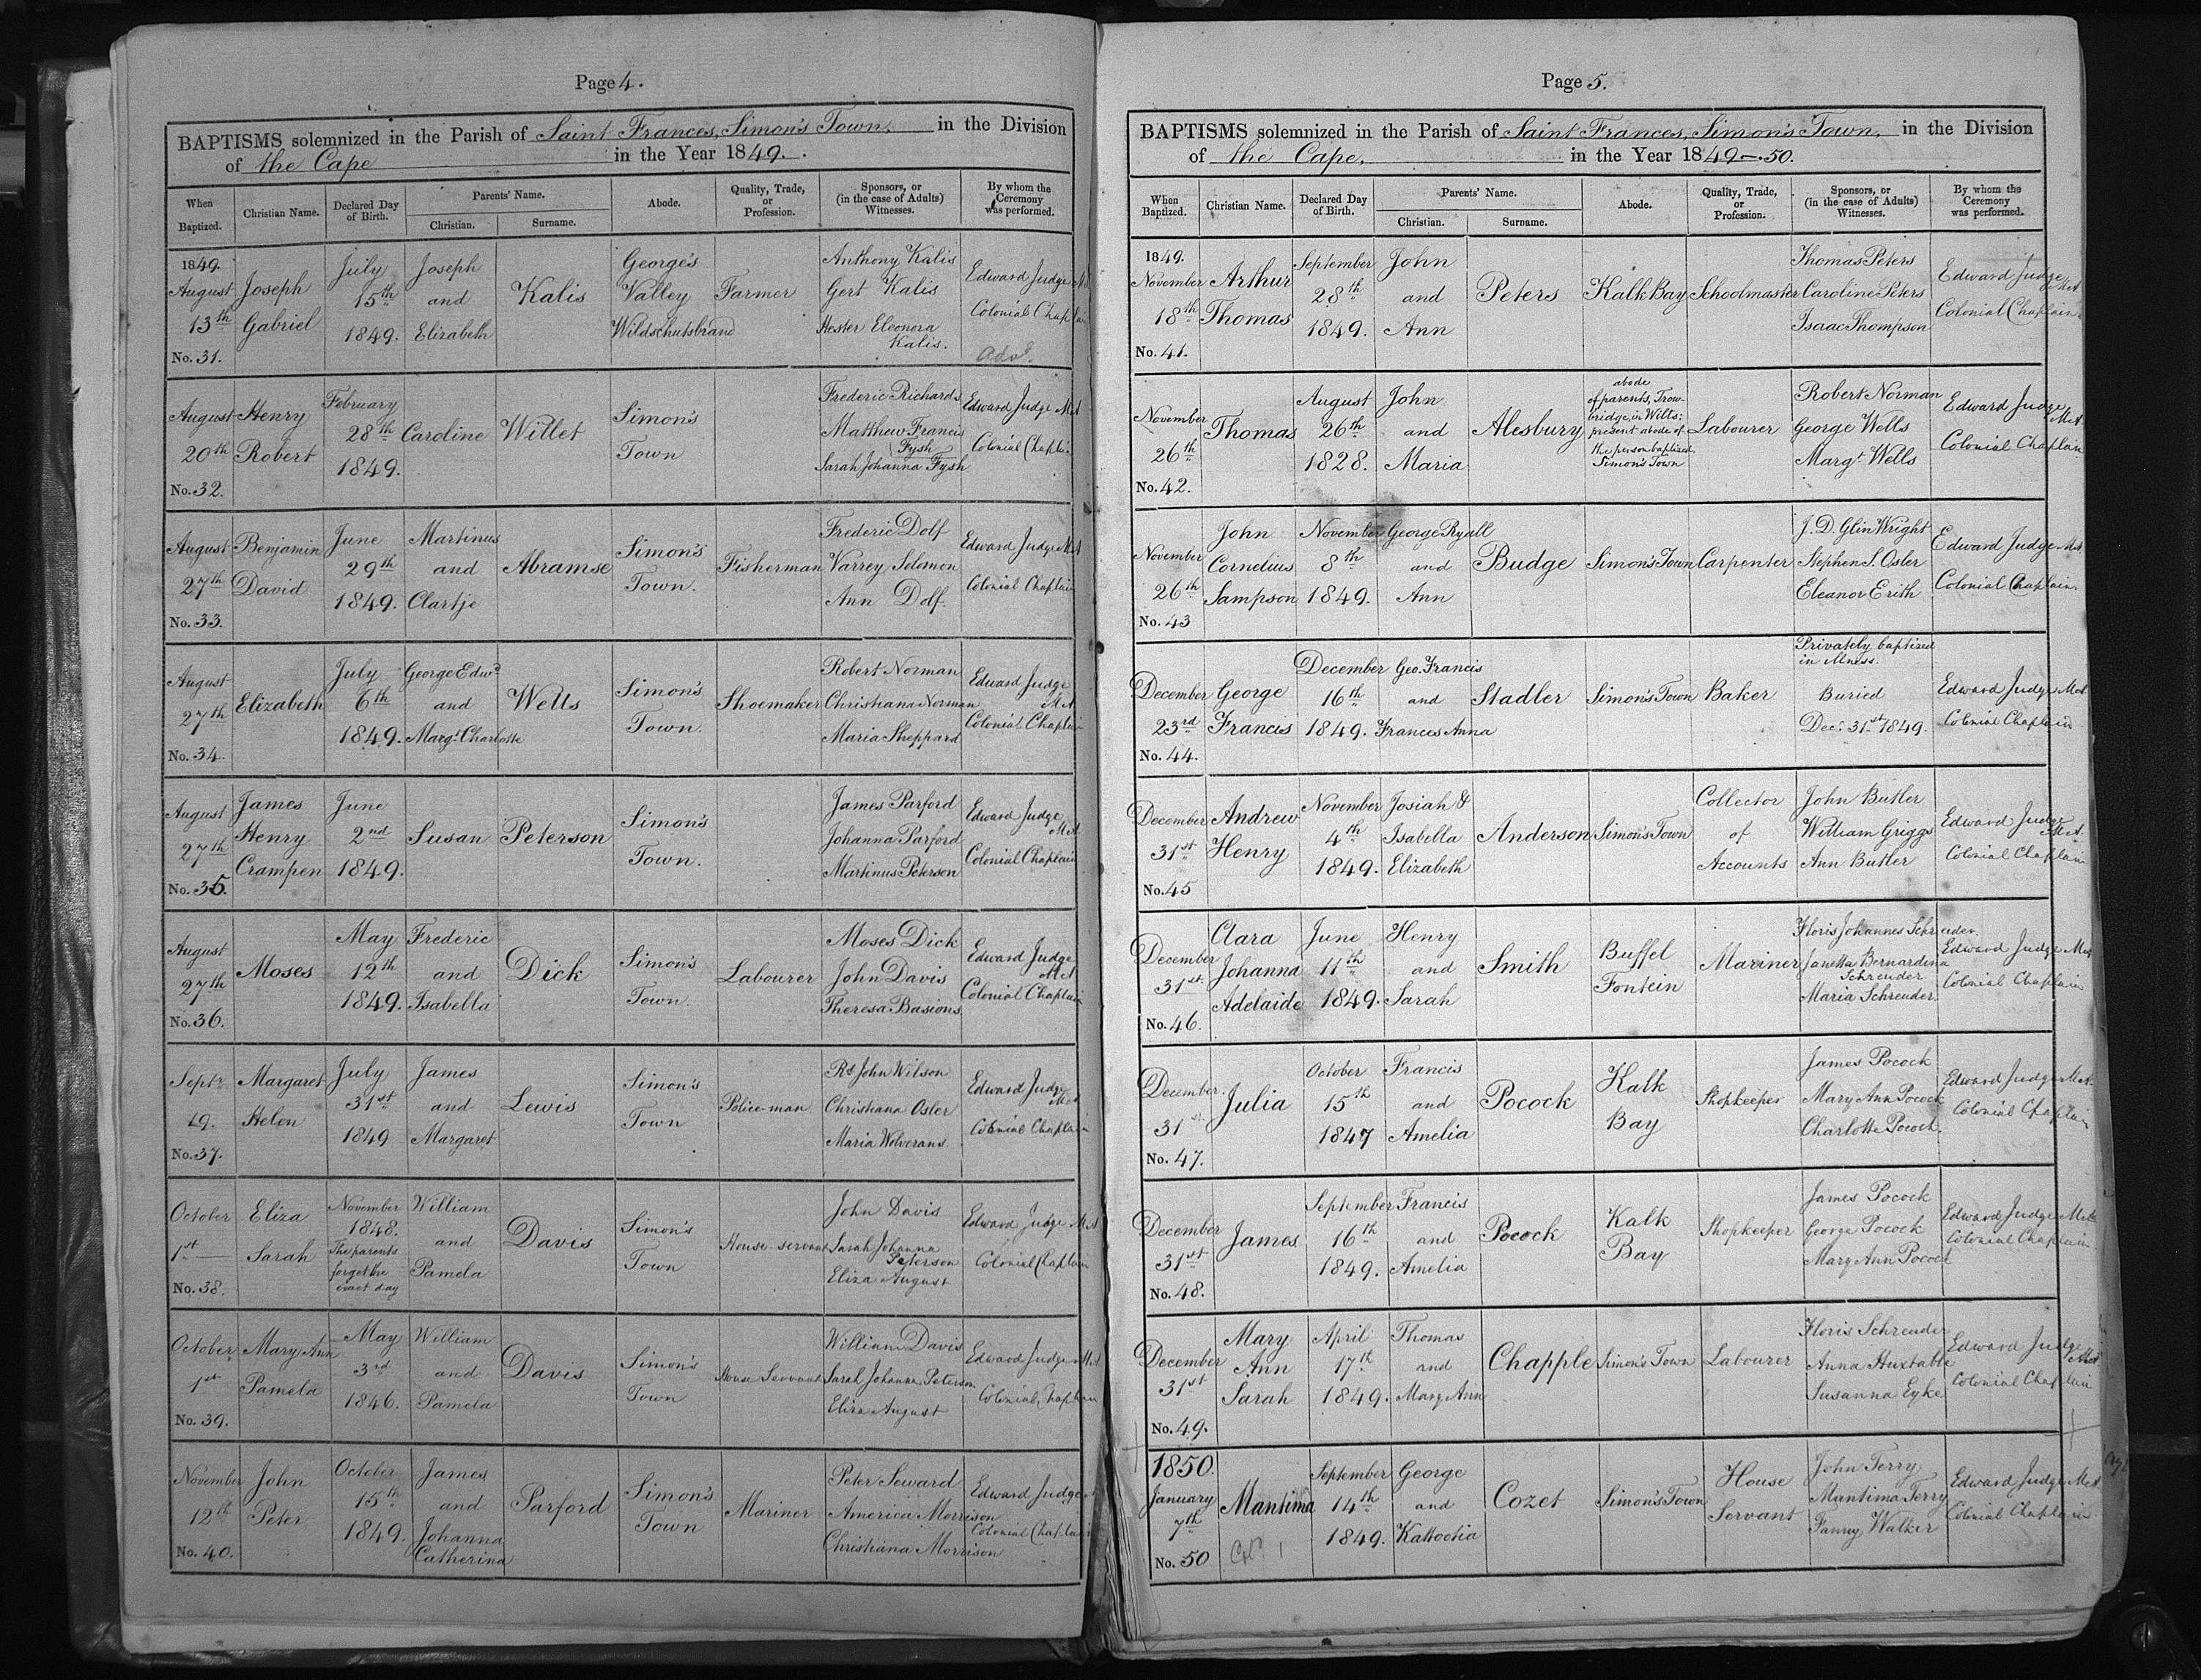 Page 4.
BAPTISMS solemnized in the Parish of Saint Frances, Simon's Town, in the Division
of the Cape in the Year 1849.
When Baptized.
Christian Name.
Declared Day of Birth.
Parents' Name.
Christian.
Surname.
Abode.
Quality, Trade, or Profession.
Sponsors, or (in the case of Adults) Witnesses.
By whom the Ceremony was performed.
1849. August 13th No. 31.
Joseph Gabriel
July 15th 1849.
Joseph and Elizabeth
Kalis
George's Valley Wildschutsbrand
Farmer
Anthony Kalis
Gert Kalis
Hester Eleonora Kalis.
Edward Judge
Colonial Chaplain
August 20th No. 32.
Henry Robert
February 28th 1849.
Caroline
Willet
Simon's Town
Frederic Richards
Matthew Francis Fysh
Sarah Johanna Fysh
Edward Judge
Colonial Chaplain
August 27th No. 33.
Benjamin David
June 29th 1849.
Martinus and Clartje
Abramse
Simon's Town.
Fisherman
Frederic Dolf
Varrey Solomon
Ann Dolf
Edward Judge
Colonial Chaplain
August 27th No. 34.
Elizabeth
July 6th 1849.
George Edwd and Margt Charlotte
Wells
Simon's Town.
Shoemaker
Robert Norman
Christiana Norman
Maria Sheppard
Edward Judge
Colonial Chaplain
August 27th No. 35.
James Henry Crampen
June 2nd 1849.
Susan
Peterson
Simon's Town.
James Parford
Johanna Parford
Martinus Peterson
Edward Judge
Colonial Chaplain
August 27th No. 36.
Moses
May 12th 1849.
Frederic and Isabella
Dick
Simon's Town.
Labourer
Moses Dick
John Davis
Theresa Basions
Edward Judge
Colonial Chaplain
Septr 19. No. 37.
Margaret Helen
July 31st 1849
James and Margaret
Lewis
Simon's Town
Police-man
Rt John Wilson
Christiana Osler
Maria Wolverans
Edward Judge
Colonial Chaplain
October 1st No. 38.
Eliza Sarah
November 1848. The parents forget the exact day
William and Pamela
Davis
Simon's Town
House-servant
John Davis
Sarah Johanna Peterson
Eliza August
Edward Judge
Colonial Chaplain
October 1st No. 39.
Mary Ann Pamela
May 3rd 1846.
William and Pamela
Davis
Simon's Town
House Servant
William Davis
Sarah Johanna Peterson
Eliza August
Edward Judge
Colonial Chaplain
November 12th No. 40.
John Peter
October 15th 1849.
James and Johanna Catherina
Parford
Simon's Town
Mariner
Peter Seward
America Morrison
Christiana Morrison
Edward Judge
Colonial Chaplain
Page 5.
BAPTISMS solemnized in the Parish of Saint Frances, Simon's Town, in the Division
of the Cape, in the Year 1849-50.
When Baptized.
Christian Name.
Declared Day of Birth.
Parents' Name.
Christian.
Surname.
Abode.
Quality, Trade, or Profession.
Sponsors, or (in the case of Adults) Witnesses.
By whom the Ceremony was performed.
1849. November 18th No. 41.
Arthur Thomas
September 28th 1849.
John and Ann
Peters
Kalk Bay
Schoolmaster
Thomas Peters
Caroline Peters
Isaac Thompson
Edward Judge
Colonial Chaplain
November 26th No. 42.
Thomas
August 26th 1828.
John and Maria
Alesbury
abode of parents, Trowbridge, in Wilts; present abode of the person baptized Simon's Town
Labourer
Robert Norman
George Wells
Margt Wells
Edward Judge
Colonial Chaplain
November 26th No. 43
John Cornelius Sampson
November 8th 1849.
George Ryall and Ann
Budge
Simon's Town
Carpenter
J. D. Glin Wright
Stephen S. Osler
Eleanor Erith
Edward Judge
Colonial Chaplain
December 23rd No. 44.
George Francis
December 16th 1849.
Geo. Francis and Frances Anna
Stadler
Simon's Town
Baker
Privately baptized in illness.
Buried
Dec. 31st 1849.
Edward Judge
Colonial Chaplain
December 31st No. 45
Andrew Henry
November 4th 1849.
Josiah & Isabella Elizabeth
Anderson
Simon's Town
Collector of Accounts
John Butler
William Griggs
Ann Butler
Edward Judge
Colonial Chaplain
December 31st No. 46.
Clara Johanna Adelaide
June 11th 1849.
Henry and Sarah
Smith
Buffel Fontein
Mariner
Floris Johannes Schreuder
Janetta Bernardina Schreuder
Maria Schreuder
Edward Judge
Colonial Chaplain
December 31st No. 47.
Julia
October 15th 1847
Francis and Amelia
Pocock
Kalk Bay
Shopkeeper
James Pocock
Mary Ann Pocock
Charlotte Pocock.
Edward Judge
Colonial Chaplain
December 31st No. 48.
James
September 16th 1849.
Francis and Amelia
Pocock
Kalk Bay
Shopkeeper
James Pocock
George Pocock
Mary Ann Pocock
Edward Judge
Colonial Chaplain
December 31st No. 49.
Mary Ann Sarah
April 17th 1849.
Thomas and Mary Ann
Chapple
Simon's Town
Labourer
Floris Schreuder
Anna Huxtable
Susanna Eyke
Edward Judge
Colonial Chaplain
1850. January 7th No. 50
Mantima
September 14th 1849.
George and Kakochia
Cozet
Simon's Town
House Servant
John Terry
Mantima Terry
Fanny Walker
Edward Judge
Colonial Chaplain